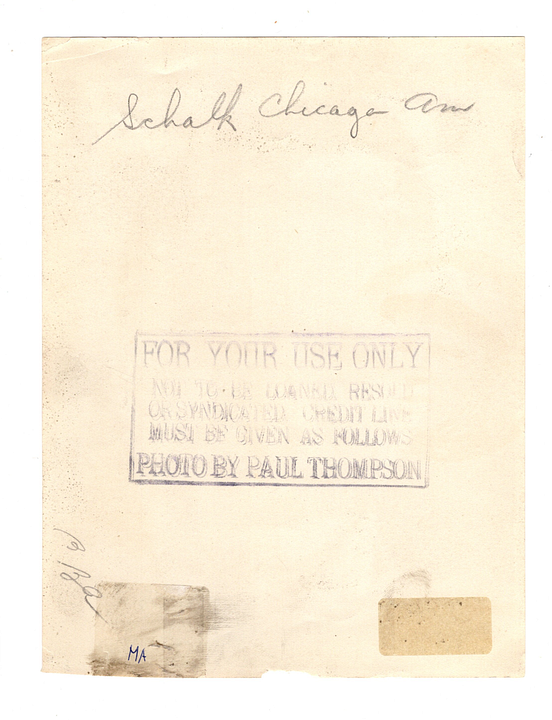 Schalk Chicago Am
FOR YOUR USE ONLY
NOT TO BE LOANED, RESOLD
OR SYNDICATED. CREDIT LINE
MUST BE GIVEN AS FOLLOWS
PHOTO BY PAUL THOMPSON
MA